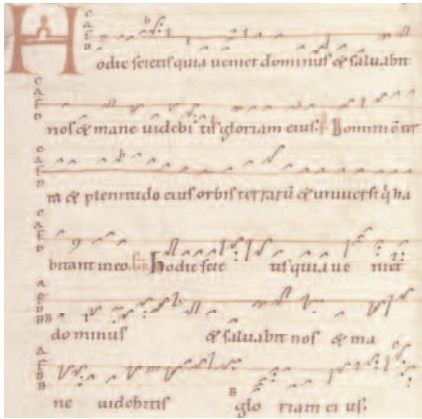 Hodie scietis quia veniet dominus & salvabit
nos & mane videbitis gloriam eius. Domini e ter
ra & plenitudo eius orbis terrarū & universi q ha
bitant in eo. Hodie scie tis quia ve niet
do minus & salvabit nos & ma
ne videbitis glo riam ei us: